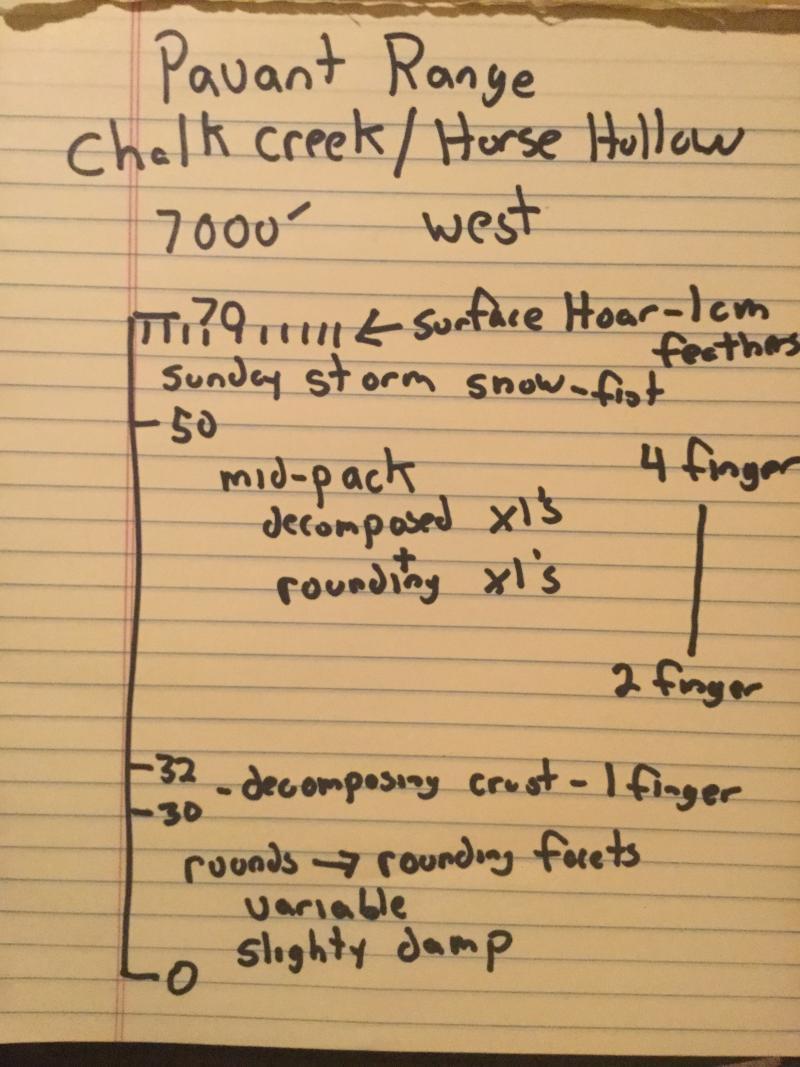 Pavant Range
Chalk Creek/Horse Hollow
7000' west
70 ← surface Hoar-1cm
feathers
sunday storm snow-fist
50
mid-pack 4 finger
decomposed xl's
+
rounding xl's
2 finger
32
- decomposing crust - 1 finger
30
rounds → rounding facets
variable
slighty damp
0